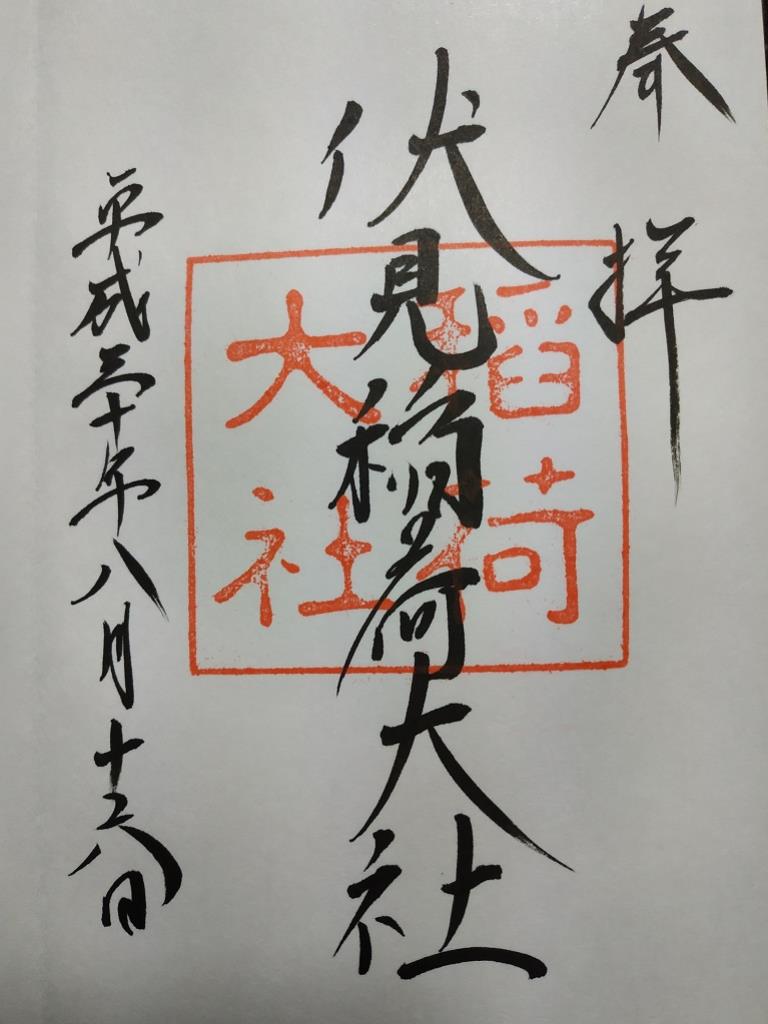 奉拝
伏見稲荷大社
稲荷
大社
平成三十年八月十六日